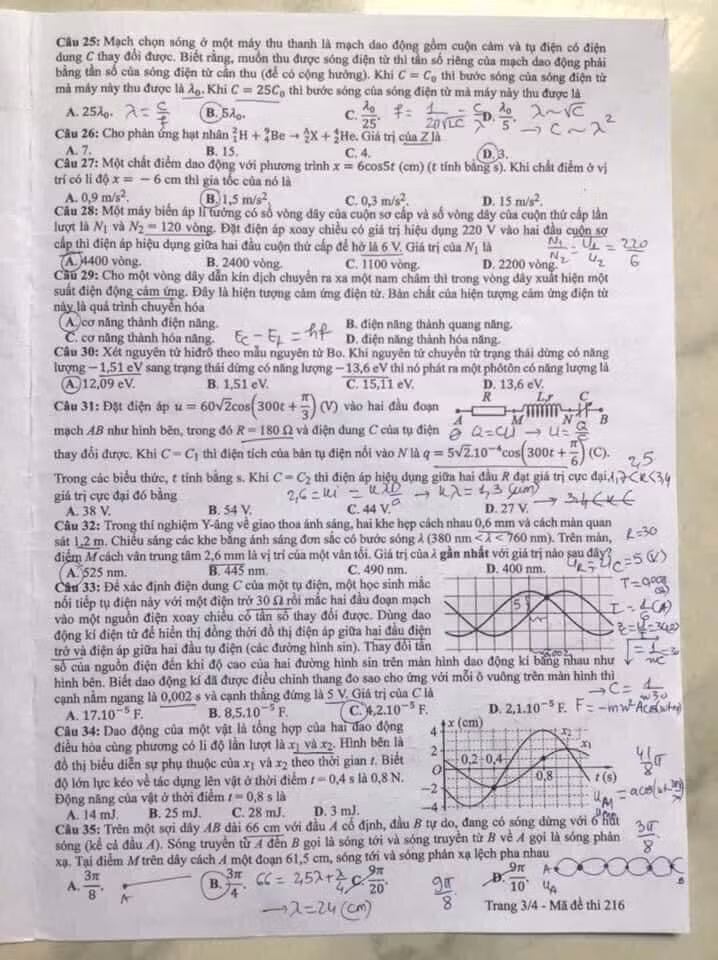 Câu 25: Mạch chọn sóng ở một máy thu thanh là mạch dao động gồm cuộn cảm và tụ điện có điện
dung C thay đổi được. Biết rằng, muốn thu được sóng điện từ thì tần số riêng của mạch dao động phải
bằng tần số của sóng điện từ cần thu (để có cộng hưởng). Khi C = C₀ thì bước sóng của sóng điện từ
mà máy này thu được là λ₀. Khi C = 25C₀ thì bước sóng của sóng điện từ mà máy này thu được là
A. 25λ₀. λ = c/f B. 5λ₀. C. λ₀/25. D. λ₀/5. λ ~ √C
→ C ~ λ²
Câu 26: Cho phản ứng hạt nhân ²₁H + ⁹₄Be → ᴬ_ZX + ⁴₂He. Giá trị của Z là
A. 7. B. 15. C. 4. D. 3.
Câu 27: Một chất điểm dao động với phương trình x = 6cos5t (cm) (t tính bằng s). Khi chất điểm ở vị
trí có li độ x = − 6 cm thì gia tốc của nó là
A. 0,9 m/s². B. 1,5 m/s². C. 0,3 m/s². D. 15 m/s².
Câu 28: Một máy biến áp lí tưởng có số vòng dây của cuộn sơ cấp và số vòng dây của cuộn thứ cấp lần
lượt là N₁ và N₂ = 120 vòng. Đặt điện áp xoay chiều có giá trị hiệu dụng 220 V vào hai đầu cuộn sơ
cấp thì điện áp hiệu dụng giữa hai đầu cuộn thứ cấp để hở là 6 V. Giá trị của N₁ là
A. 4400 vòng. B. 2400 vòng. C. 1100 vòng. D. 2200 vòng. N₁/N₂ = U₁/U₂ = 220/6
Câu 29: Cho một vòng dây dẫn kín dịch chuyển ra xa một nam châm thì trong vòng dây xuất hiện một
suất điện động cảm ứng. Đây là hiện tượng cảm ứng điện từ. Bản chất của hiện tượng cảm ứng điện từ
này là quá trình chuyển hóa
A. cơ năng thành điện năng. B. điện năng thành quang năng.
C. cơ năng thành hóa năng. D. điện năng thành hóa năng.
Câu 30: Xét nguyên tử hiđrô theo mẫu nguyên tử Bo. Khi nguyên tử chuyển từ trạng thái dừng có năng
lượng − 1,51 eV sang trạng thái dừng có năng lượng − 13,6 eV thì nó phát ra một phôtôn có năng lượng là
A. 12,09 eV. B. 1,51 eV. C. 15,11 eV. D. 13,6 eV.
Câu 31: Đặt điện áp u = 60√2cos(300t + π/3) (V) vào hai đầu đoạn
R L,r C
A M N B
mạch AB như hình bên, trong đó R = 180 Ω và điện dung C của tụ điện
thay đổi được. Khi C = C₁ thì điện tích của bản tụ điện nối vào N là q = 5√2.10⁻⁴cos(300t + π/6) (C).
Trong các biểu thức, t tính bằng s. Khi C = C₂ thì điện áp hiệu dụng giữa hai đầu R đạt giá trị cực đại,
giá trị cực đại đó bằng
A. 38 V. B. 54 V. C. 44 V. D. 27 V.
Câu 32: Trong thí nghiệm Y-âng về giao thoa ánh sáng, hai khe hẹp cách nhau 0,6 mm và cách màn quan
sát 1,2 m. Chiếu sáng các khe bằng ánh sáng đơn sắc có bước sóng λ (380 nm < λ < 760 nm). Trên màn,
R=30
điểm M cách vân trung tâm 2,6 mm là vị trí của một vân tối. Giá trị của λ gần nhất với giá trị nào sau đây?
A. 525 nm. B. 445 nm. C. 490 nm. D. 400 nm.
Câu 33: Để xác định điện dung C của một tụ điện, một học sinh mắc
nối tiếp tụ điện này với một điện trở 30 Ω rồi mắc hai đầu đoạn mạch
vào một nguồn điện xoay chiều có tần số thay đổi được. Dùng dao
động kí điện tử để hiển thị đồng thời đồ thị điện áp giữa hai đầu điện
trở và điện áp giữa hai đầu tụ điện (các đường hình sin). Thay đổi tần
số của nguồn điện đến khi độ cao của hai đường hình sin trên màn hình dao động kí bằng nhau như
hình bên. Biết dao động kí đã được điều chỉnh thang đo sao cho ứng với mỗi ô vuông trên màn hình thì
cạnh nằm ngang là 0,002 s và cạnh thẳng đứng là 5 V. Giá trị của C là
A. 17.10⁻⁵ F. B. 8,5.10⁻⁵ F. C. 4,2.10⁻⁵ F. D. 2,1.10⁻⁵ F.
Câu 34: Dao động của một vật là tổng hợp của hai dao động
điều hòa cùng phương có li độ lần lượt là x₁ và x₂. Hình bên là
đồ thị biểu diễn sự phụ thuộc của x₁ và x₂ theo thời gian t. Biết
độ lớn lực kéo về tác dụng lên vật ở thời điểm t = 0,4 s là 0,8 N.
Động năng của vật ở thời điểm t = 0,8 s là
A. 14 mJ. B. 25 mJ. C. 28 mJ. D. 3 mJ.
x (cm)
4
x₂
x₁
2
0,2 0,4
0
0,8
t (s)
−2
−4
Câu 35: Trên một sợi dây AB dài 66 cm với đầu A cố định, đầu B tự do, đang có sóng dừng với 6 nút
sóng (kể cả đầu A). Sóng truyền từ A đến B gọi là sóng tới và sóng truyền từ B về A gọi là sóng phản
xạ. Tại điểm M trên dây cách A một đoạn 61,5 cm, sóng tới và sóng phản xạ lệch pha nhau
A. 3π/8. B. 3π/4. 66 = 2,5λ + λ/4 C. 9π/20. D. 9π/10.
→ λ = 24 (cm)
9π/8
Trang 3/4 - Mã đề thi 216